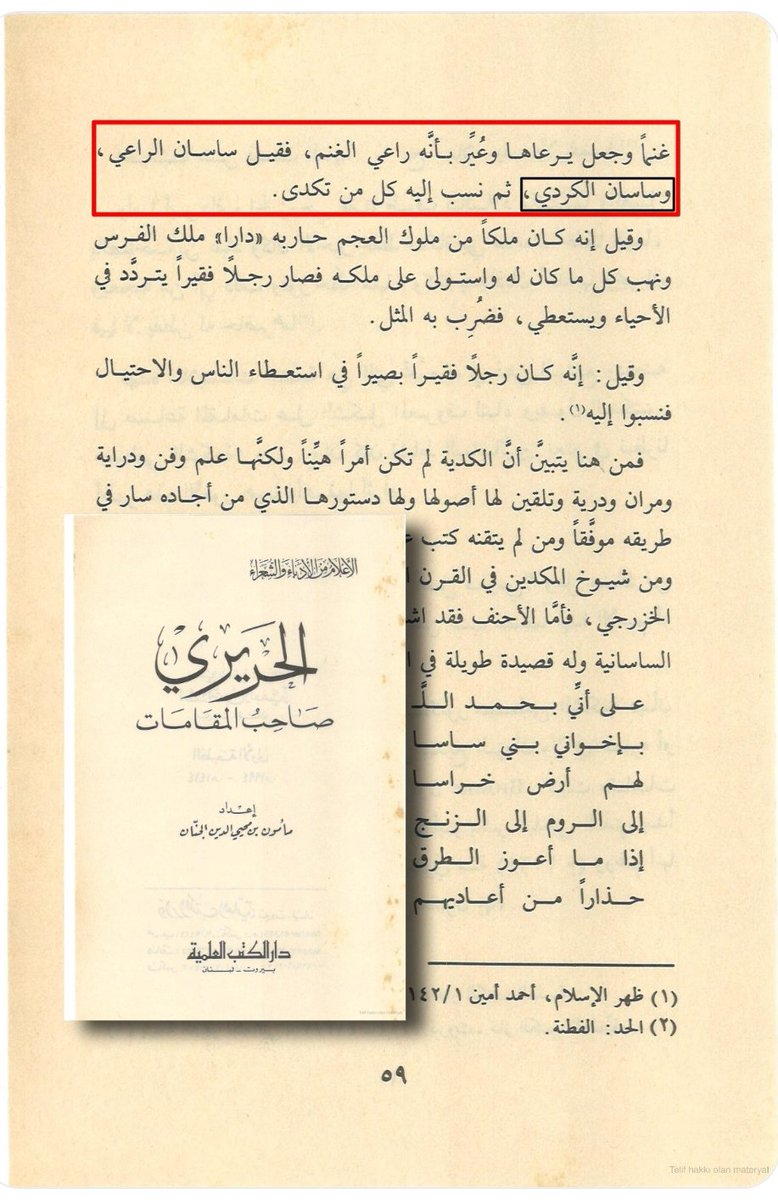 غنماً وجعل يرعاها وعُيِّر بأنَّه راعي الغنم، فقيل ساسان الراعي،
وساسان الكردي، ثم نسب إليه كل من تكدى.
وقيل إنه كان ملكاً من ملوك العجم حاربه «دارا» ملك الفرس
ونهب كل ما كان له واستولى على ملكه فصار رجلاً فقيراً يتردَّد في
الأحياء ويستعطي، فضُرِب به المثل.
وقيل: إنَّه كان رجلاً فقيراً بصيراً في استعطاء الناس والاحتيال
فنسبوا إليه(١).
فمن هنا يتبينَّ أنَّ الكدية لم تكن أمراً هيِّناً ولكنَّها علم وفن ودراية
ومران ودربة وتلقين لها أصولها ولها دستورها الذي من أجاده سار في
طريقه موفَّقاً ومن لم يتقنه كتب
ومن شيوخ المكدين في القرن
الخزرجي، فأمَّا الأحنف فقد
الساسانية وله قصيدة طويلة في
على أنِّي بحمد اللَّـ
بإخواني بني ساسا
لهم أرض خراسا
إلى الروم إلى الزنج
إذا ما أعوز الطرق
حذاراً من أعاديهم
(١) ظهر الإسلام، أحمد أمين ١٤٢/١
(٢) الحد: الفطنة.
٥٩
الأعلام من الأدباء والشعراء
الحريري
صاحب المقامات
إعداد
مأمون بن محيي الدين الجنّان
دار الكتب العلمية
بيروت - لبنان
Telif hakkı olan materyal